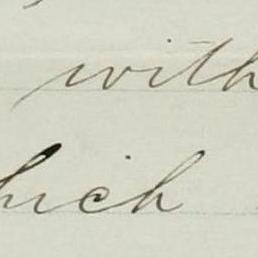 with
hich